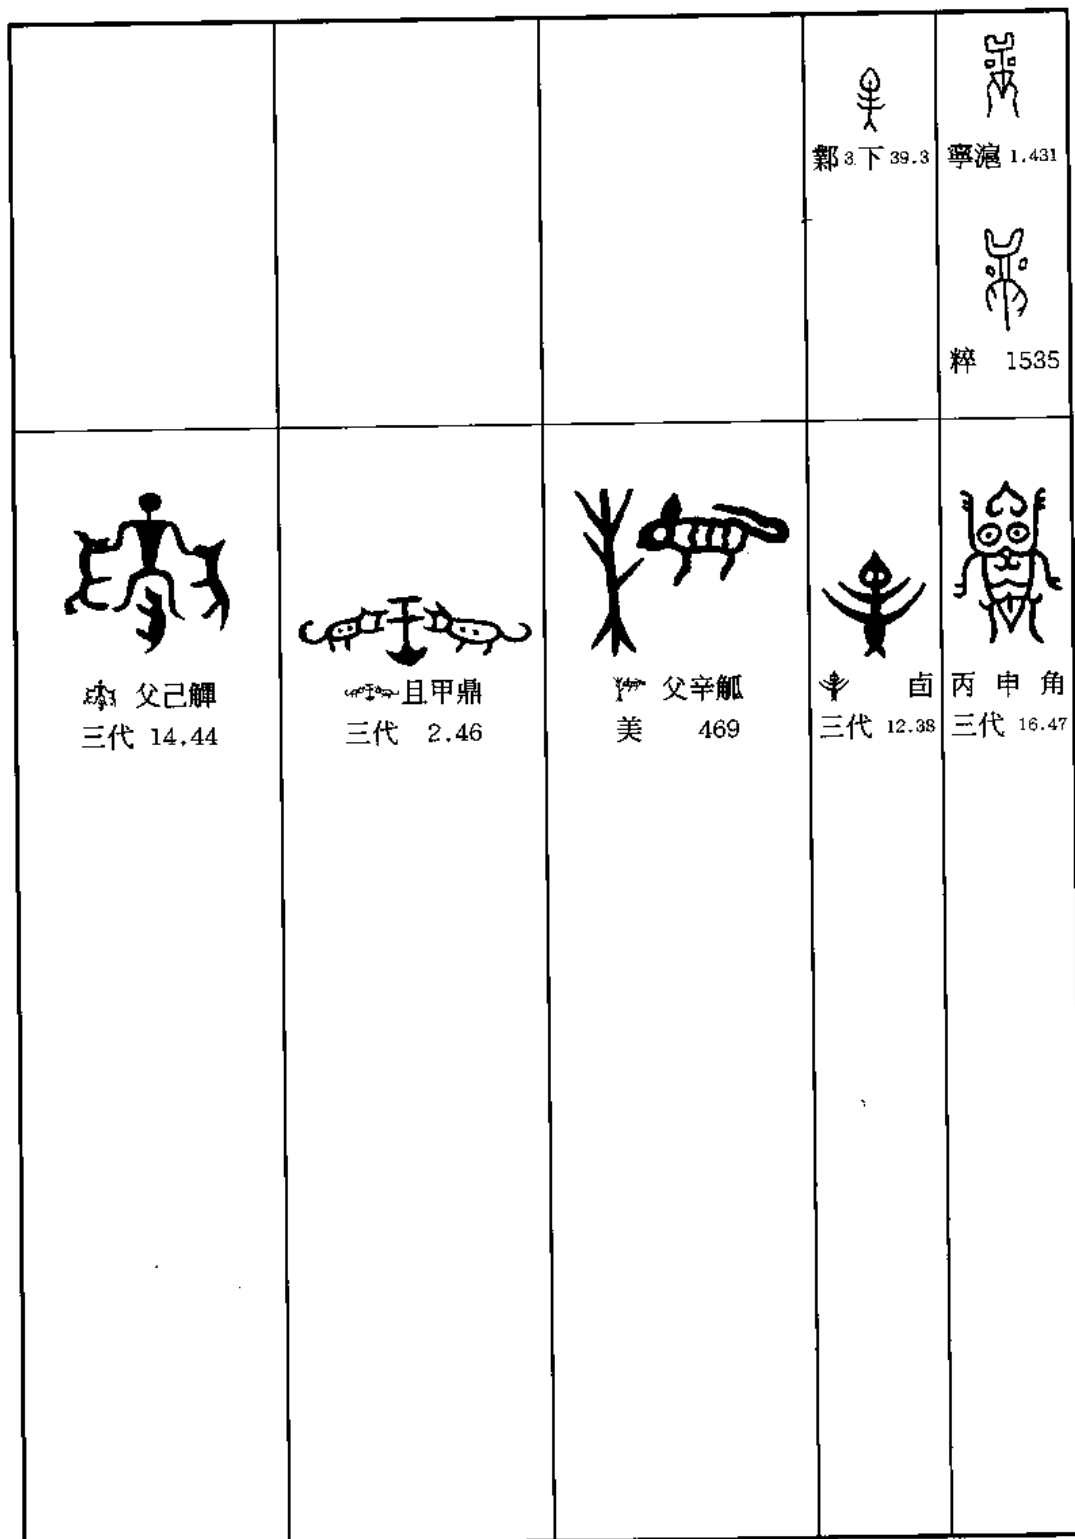 鄴3.下39.3
寧滬1.431
粹 1535
父己觶
三代 14.44
且甲鼎
三代 2.46
父辛觚
美 469
卣
三代 12.38
丙申角
三代 16.47